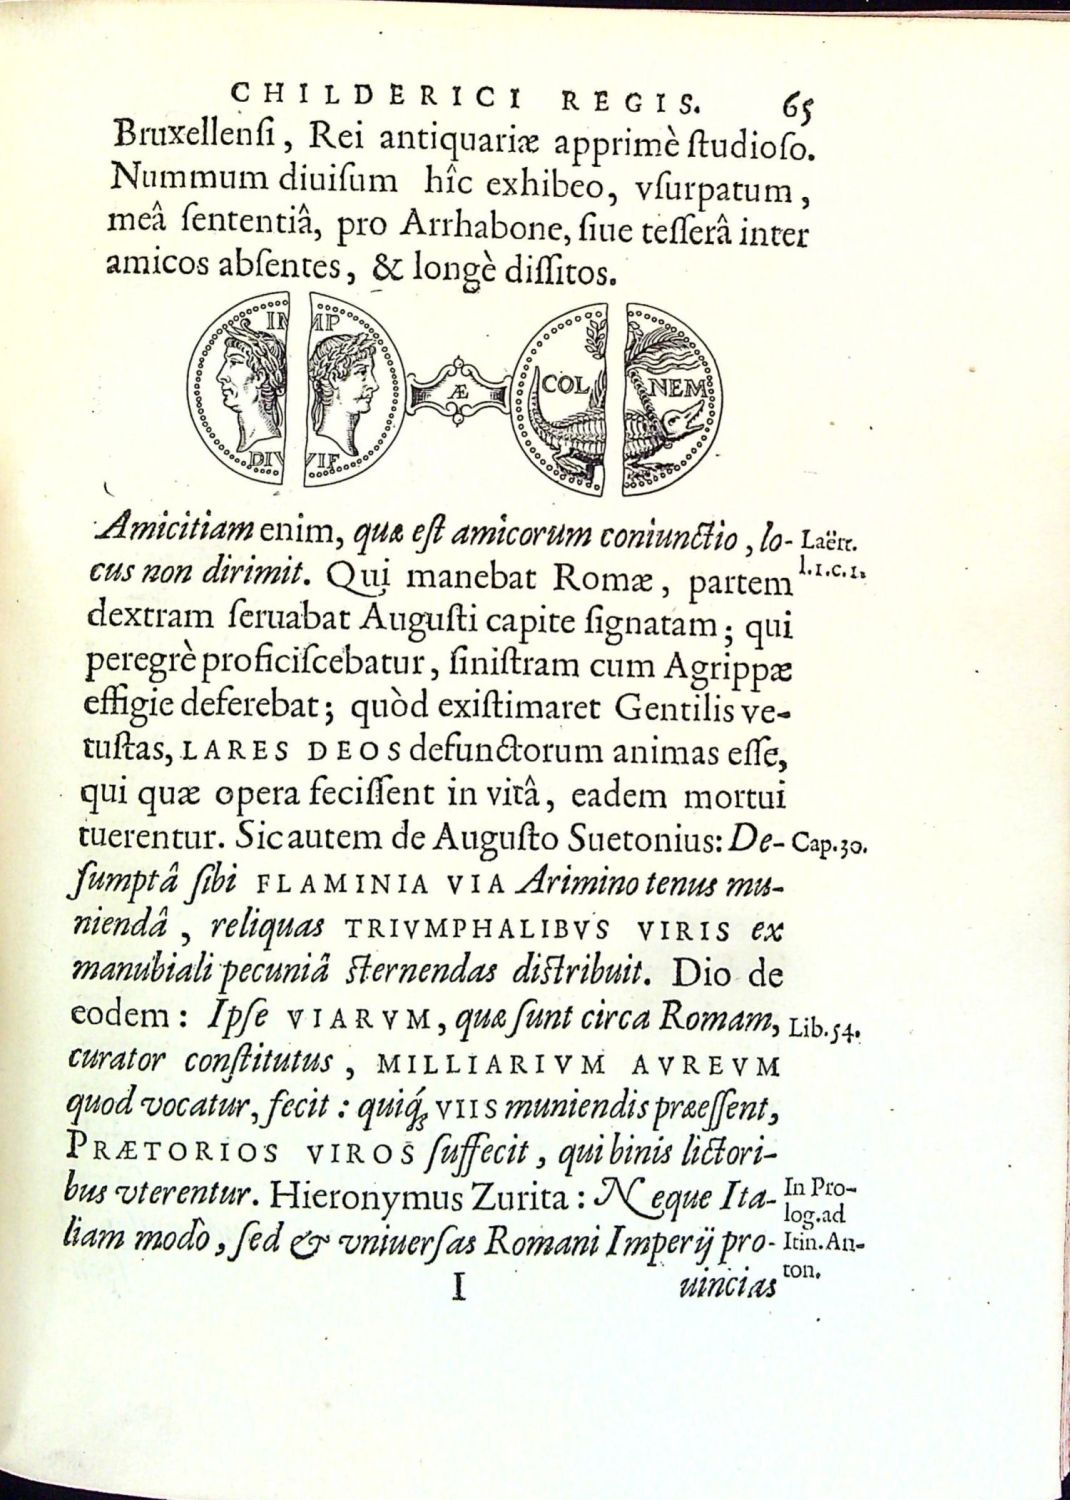 CHILDERICI REGIS. 65
Bruxellenſi, Rei antiquariæ apprimè ſtudioſo.
Nummum diuiſum hîc exhibeo, vſurpatum,
meâ ſententiâ, pro Arrhabone, ſiue teſſerâ inter
amicos abſentes, & longè diſſitos.
IM MP
DIV VIF
Æ
COL NEM
Amicitiam enim, quæ eſt amicorum coniunctio, lo- Laërt.
cus non dirimit. Qui manebat Romæ, partem l.1.c.1.
dextram ſeruabat Auguſti capite ſignatam; qui
peregrè proficiſcebatur, ſiniſtram cum Agrippæ
effigie deferebat; quòd exiſtimaret Gentilis ve-
tuſtas, LARES DEOS defunctorum animas eſſe,
qui quæ opera feciſſent in vitâ, eadem mortui
tuerentur. Sic autem de Auguſto Suetonius: De- Cap.30.
ſumptâ ſibi FLAMINIA VIA Arimino tenus mu-
niendâ, reliquas TRIVMPHALIBVS VIRIS ex
manubiali pecuniâ ſternendas diſtribuit. Dio de
eodem: Ipſe VIARVM, quæ ſunt circa Romam, Lib.54.
curator conſtitutus, MILLIARIVM AVREVM
quod vocatur, fecit: quiq́ꝫ VIIS muniendis præeſſent,
PRÆTORIOS VIROS ſuffecit, qui binis lictori-
bus vterentur. Hieronymus Zurita: Neque Ita- In Pro-
log.ad
liam modò, ſed & vniuerſas Romani Imperij pro- Itin.An-
ton.
I uincias